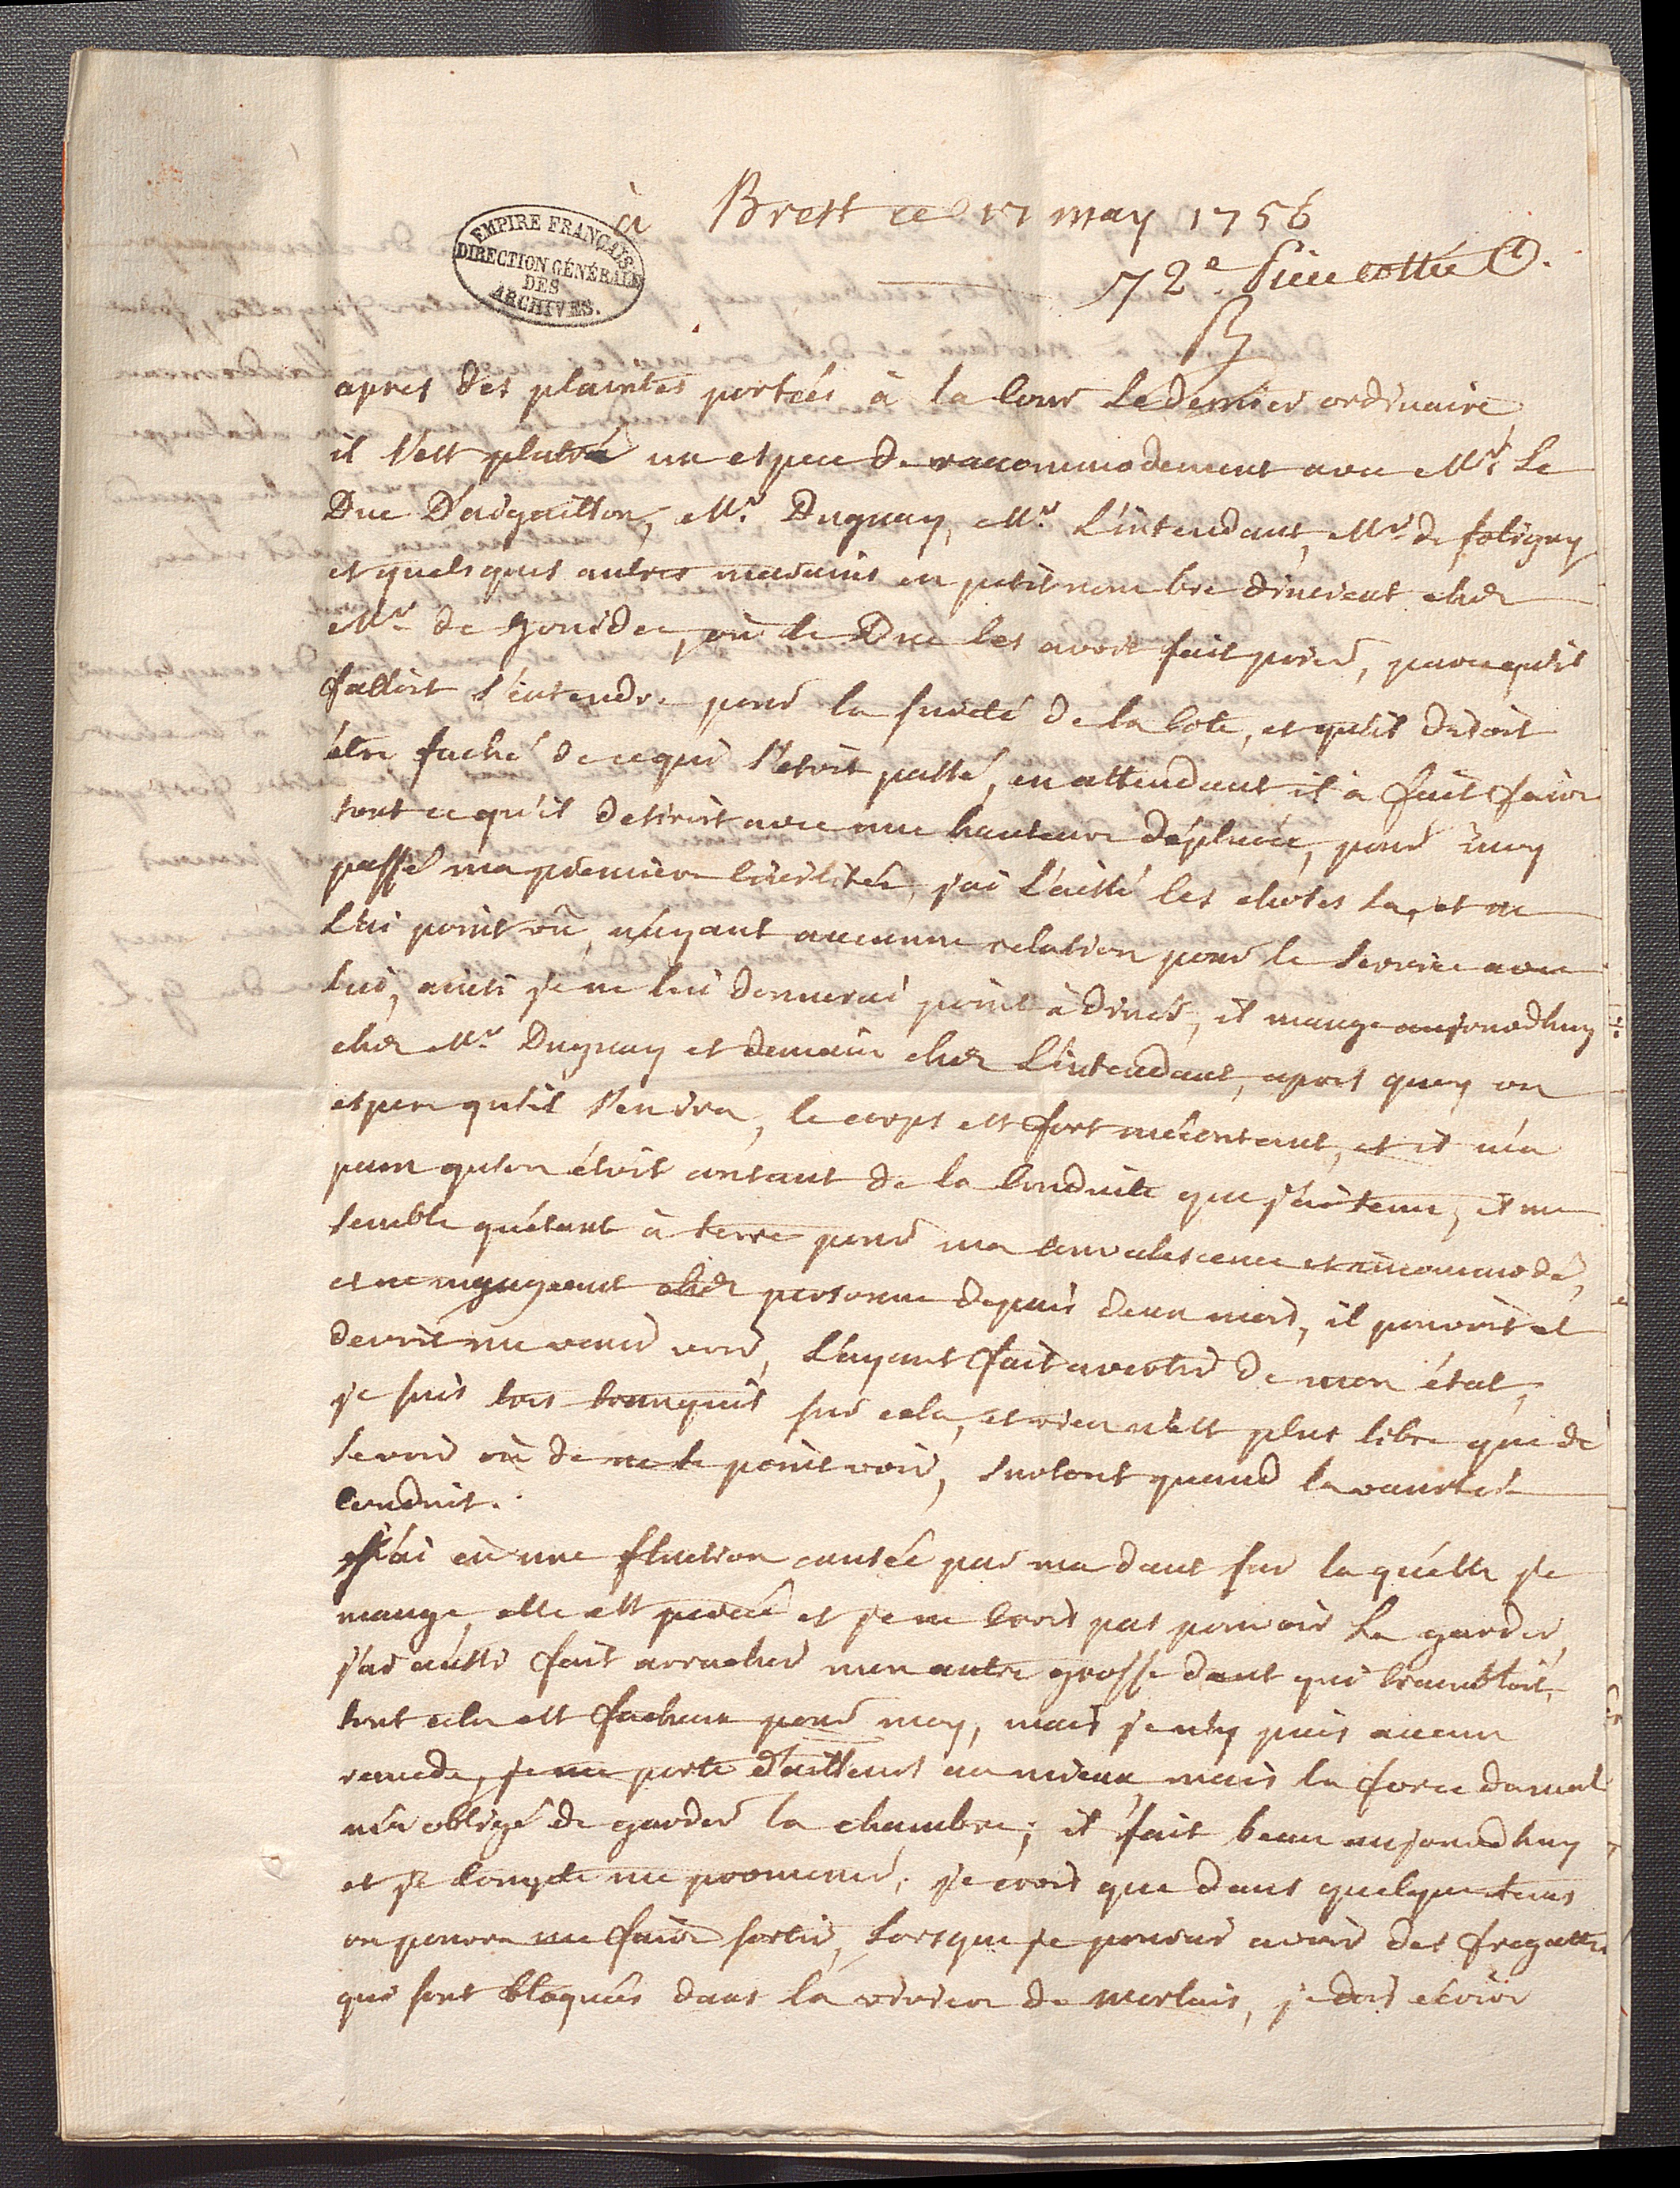 à Brest ce 17 may 1756
72e. Piece cottée
EMPIRE FRANÇAIS
DIRECTION GÉNÉRALE
DES
ARCHIVES.
apres des plaintes portées à la Cour le dernier ordinaire
il s'est platré une espece de racommodement avec Mr. Le
Duc D'aiguillon, Mr. Duguay, Mr. L'intendant, Mr. de foligny
et quelques autres marains en petit nombre dinerent ches
Mr. de gouides, où le Duc les avoit fait prier, parcequ'il
falloit s'entendre pour la sureté de la Cote, et qu'il disoit
être faché de ce qui s'etoit passé, en attendant il a fait faire
tout ce qu'il desiroit avec une hauteur déplacée, pour moy
passé ma premiere civilitée, j'ai laissé les choses la, et ne
L'ai point vû, n'ayant aucunne relation pour le service avec
Lui, ainsi je ne lui donnerai point à diner, il mange aujourdhuy
ches Mr. Duguay et demain ches L'intendant, apres quoy on
espere qu'il s'en ira, le corps est fort mécontent, et il m'a
paru qu'on étoit contant de la Conduite que j'ai tenu, il me
semble qu'étant à terre pour ma convalescence et incommodé,
et ne mangeant ches personne depuis deux mois, il pouvoit et
devoit me venir voir, L'ayant fait avertir de mon état,
je suis tres tranquil sur cela, et rien n'est plus libre que de
se voir où de ne se point voir, surtout quand la vanité
Conduit.
J'ai eû une fluction causée par ma dant sur la quelle je
mange, elle est percée et je ne Crois pas pouvoir La garder,
j'ai aussi fait arracher mon autre grosse dant qui trambloit,
tout cela est facheux pour moy, mais je n'y puis aucun
remede, je me porte d'ailleurs au mieux, mais la force du mal
m'a obligé de garder la chambre; il fait beau aujourdhuy
et je Compte me promener. je crois que dans quelque tems
on pourra me faire sortir, Lorsque je pourai avoir des fregattes
qui sont bloquées dans la riviere de Morlaix, je dois écrire